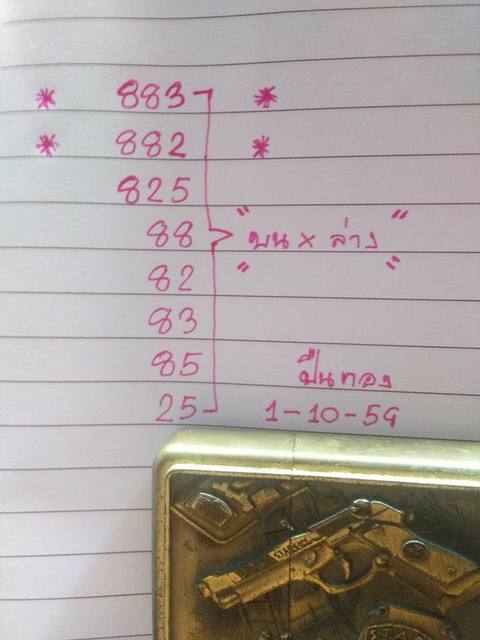 * 883 *
* 882 *
825
88 " บน x ล่าง "
82 " "
83
85 ปืนทอง
25 1-10-59